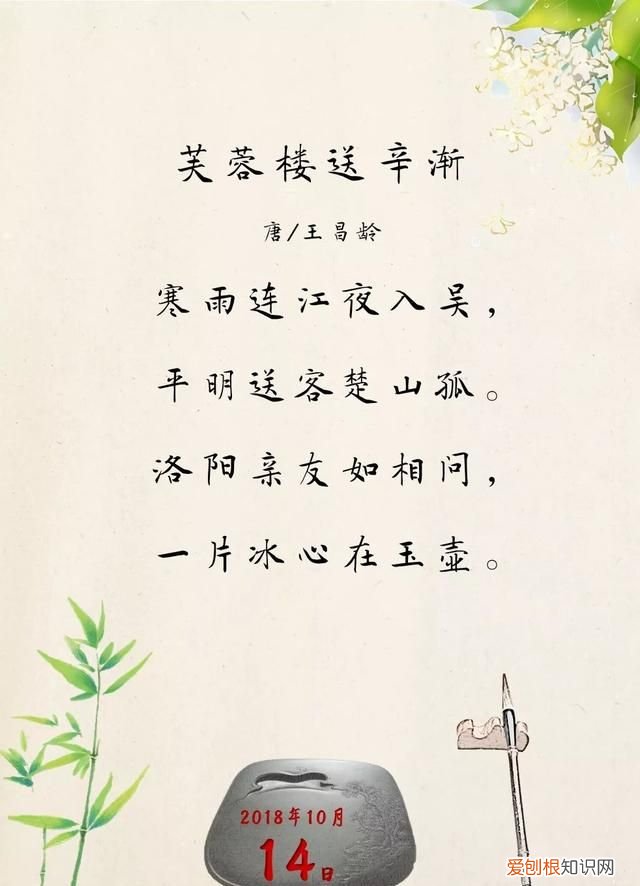 芙蓉楼送辛渐
唐/王昌龄
寒雨连江夜入吴，
平明送客楚山孤。
洛阳亲友如相问，
一片冰心在玉壶。
2018年10月
14日
爱刨根知识网